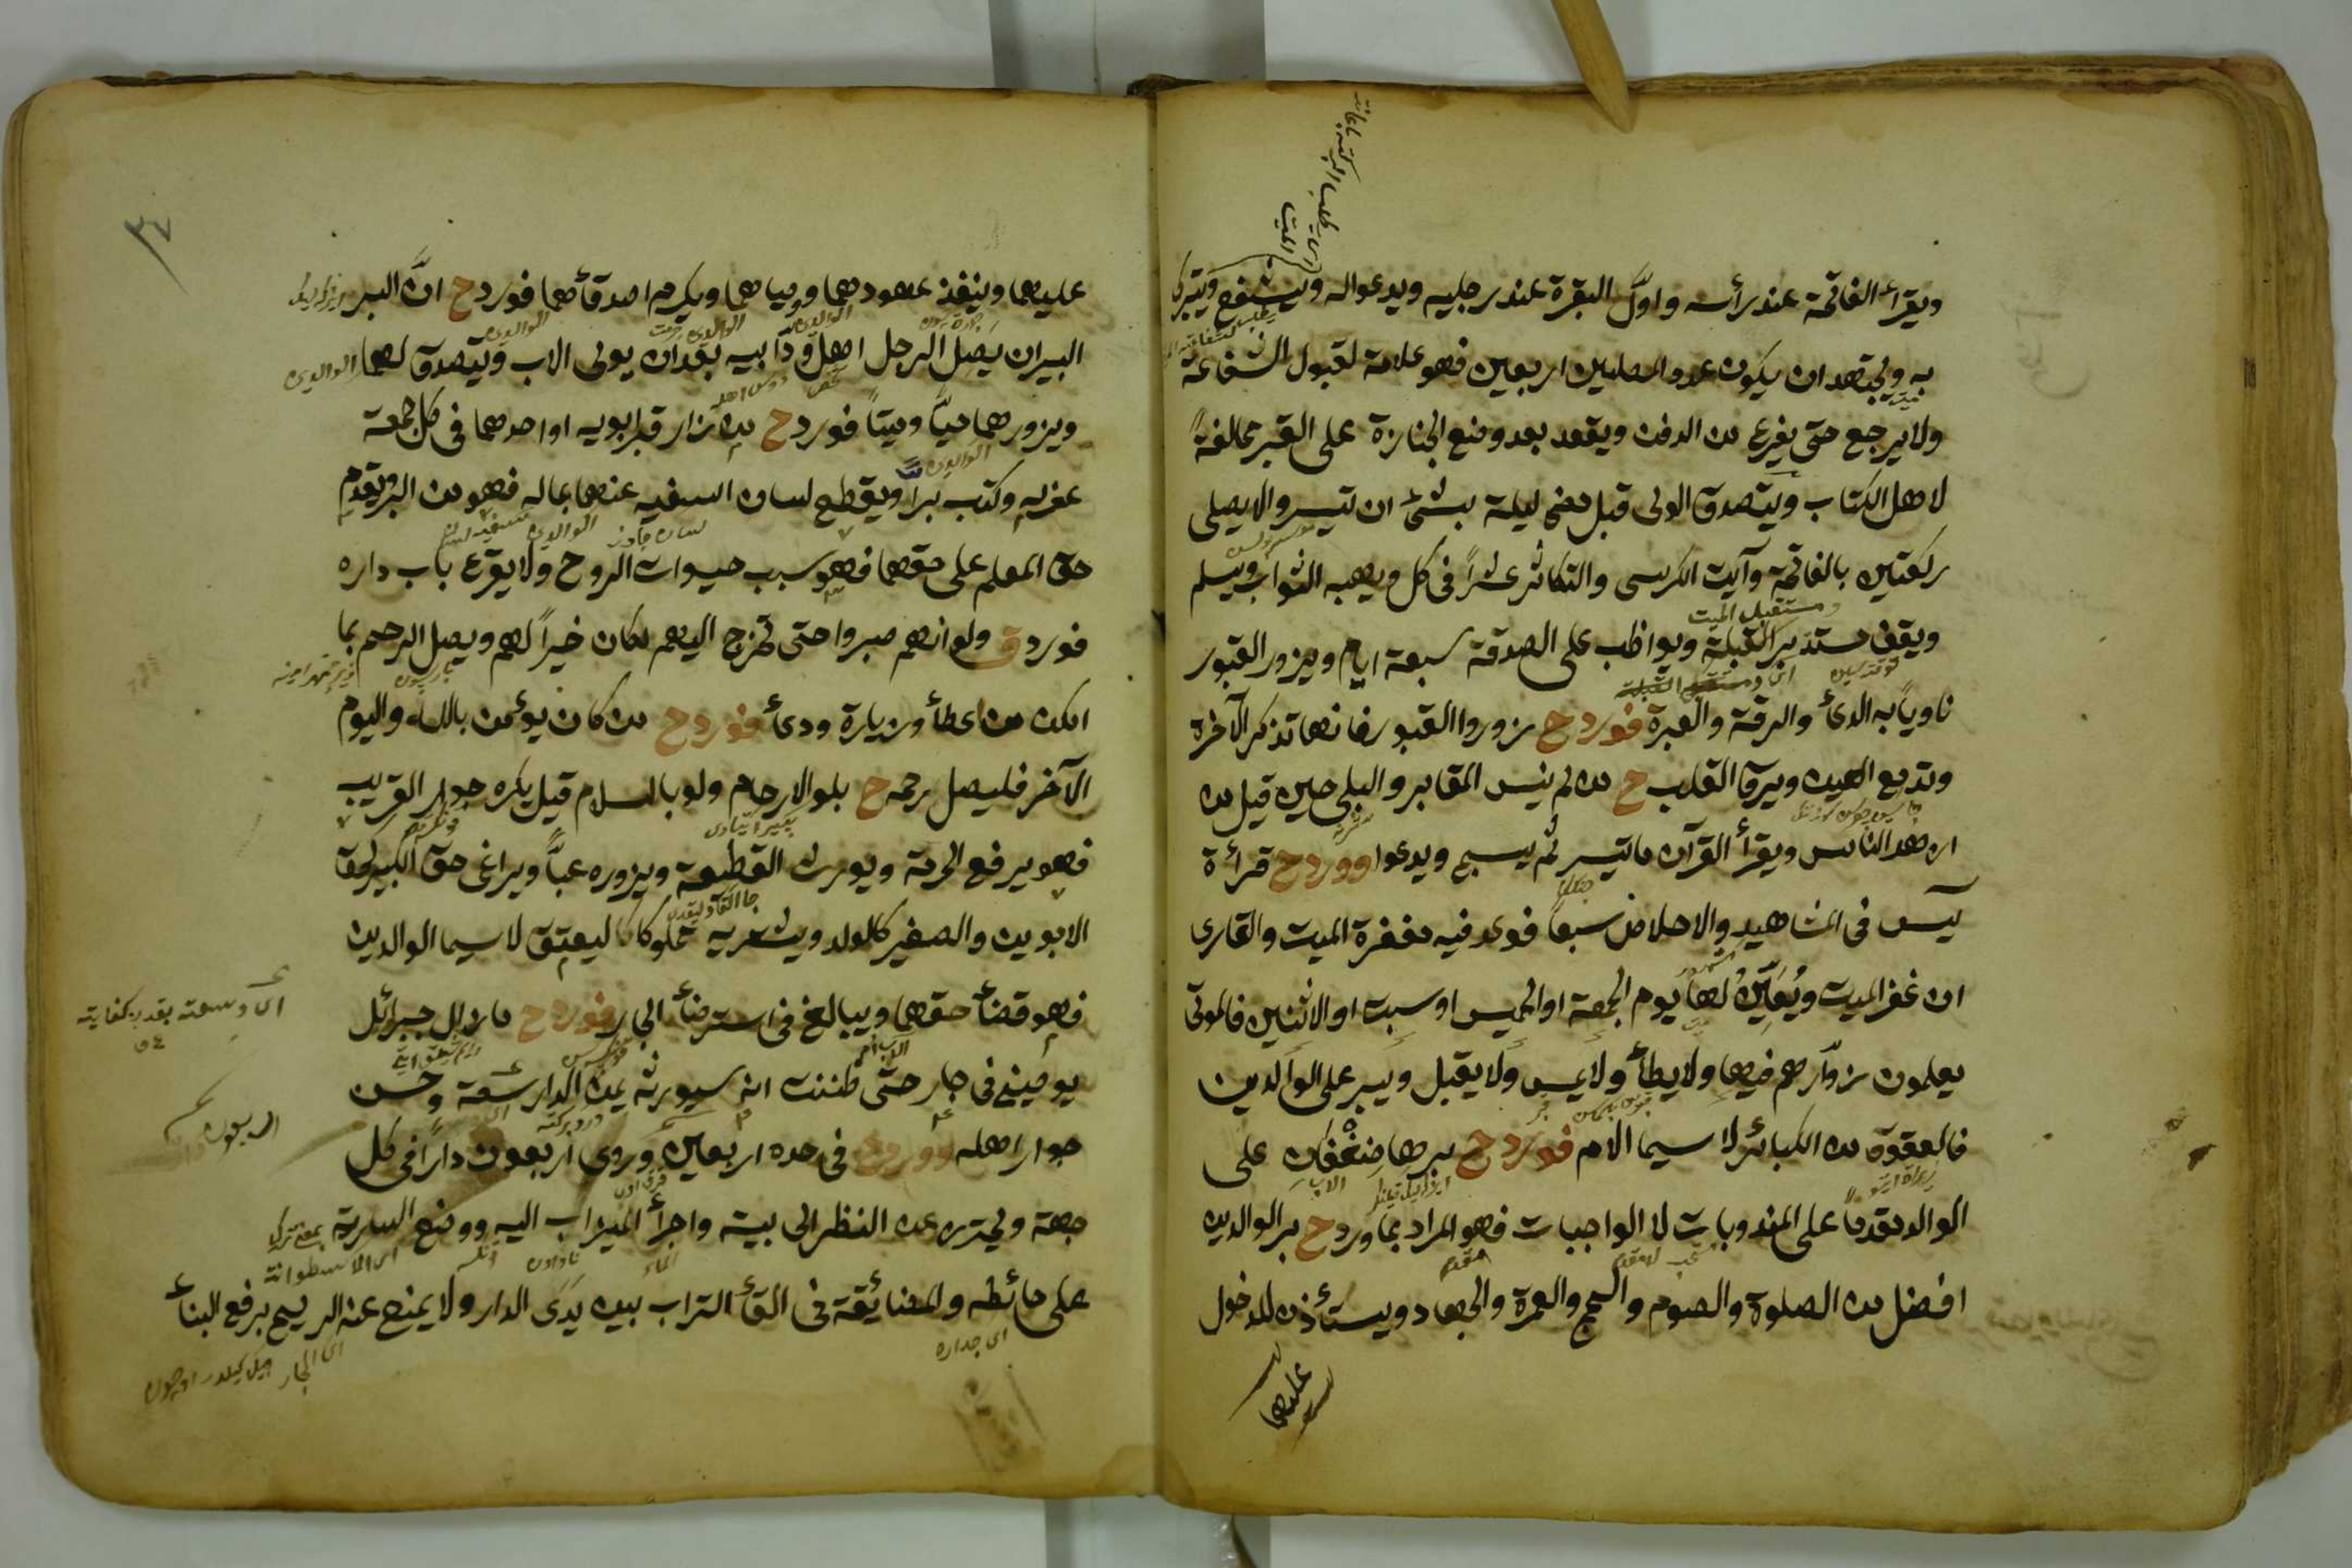 ويقرأ الفاتحة عند رأسه واوّل البقرة عند رجليه ويدعواله ويستشفع ويتبرك
به ويجتهد ان يكون عدد المصلين اربعين فهو علامة لقبول الشفاعة
ولا يرجع حتى يفرغ من الدفن ويقعد بعد وضع الجنازة على القبر مخالفةً
لاهل الكتاب ويتصدق الولى قبل مضى ليلة بشئ ان تيسر والا يصلى
ركعتين بالفاتحة وآيت الكرسى والتكاثر عشراً فى كل ويهبه الثواب ويسلم
ويقف مستدبر القبلة ويواظب على الصدقة سبعة ايام ويزور القبور
ناوياً به الدعأ والرقة والعبرة فورد ح زوروا القبور فانها تذكر الآخرة
وتدمع العين ويرق القلب ح من لم ينس المقابر والبلى حين قيل من
ازهد الناس ويقرأ القرآن ماتيسر ثم يسبح ويدعوا وورد ح قرأة
يس فى المشاهيد والاخلاص سبعاً فوعد فيه مغفرة الميت والقارى
ان غفر الميت ويُعَيّن لها يوم الجمعة او الخميس او سبت او الاثنين فالموتى
يعلمون زوّارهم فيها ولا يطأ ولا يمس ولا يقبل ويبر على الوالدين
فالعقوق من الكبائر لا سيما الام فورد ح برها ضعفان على
الوالد مقدماً على المندوبات لا الواجبات فهو المراد بما ورد ح بر الوالدين
افضل من الصلوة والصوم والحج والعمرة والجهاد ويستأذن للدخول
عليهما
٣٤
عليهما وينفذ عهودهما ووصياهما ويكرم اصدقأهما فورد ح انّ البر
البر ان يصل الرجل اهل ودّ ابيه بعد ان يولى الاب ويتصدق لهما
ويزورهما حيّاً وميتاً فورد ح من زار قبر ابويه او احدهما فى كل جمعة
غفر له وكتب براً ويقطع لسان السفيه عنهما بماله فهو من البر ويقدم
حق المعلم على حقهما فهو سبب حيوات الروح ولا يقرع باب داره
فورد ق ولو انهم صبروا حتى تخرج اليهم لكان خيراً لهم ويصل الرحم بما
امكن من اعطأ وزيارة ودعأ فورد ح من كان يؤمن بالله واليوم
الآخر فليصل رحمه ح بلوا الارحام ولو بالسلام قيل يكره جوار القريب
فهو يرفع الحرمة ويورث القطيعة ويزوره غبّاً ويراعى حق الكبير كحق
الابوين والصغير كالولد ويشتريه مملوكا ليعتق لا سيما الوالدين
فهو قضأ حقهما ويبالغ فى استرضأ الجار فورد ح مازال جبرائل
يوصينى فى جار حتى ظننت انه سيورثه يمن الدار سعة وحسن
جوار اهله وورد ح فى حده اربعين وروى اربعون داراً فى كل
جهة ويحترز عن النظر الى بيته واجرأ الميزاب اليه ووضع السرية
على حائطه والمضائقة فى القأ التراب بين يدى الدار ولا يمنع عنه الريح برفع البنأ
اى وسعته بقدر كفايته
اى جداره
اى الجار